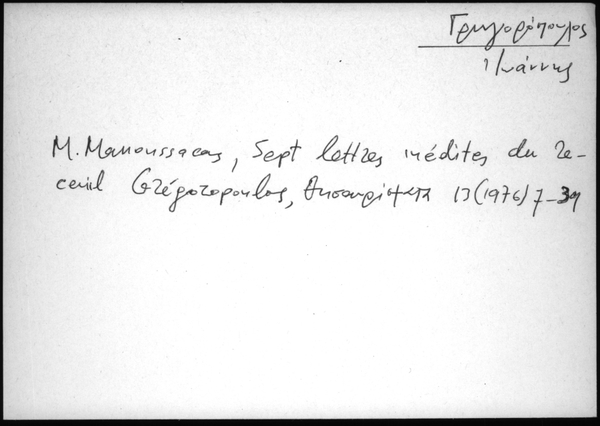 Γρηγορόπουλος
Ἰωάννης
M. Manoussacas, Sept lettres inédites du re-
cueil Grégoropoulos, Θησαυρίσματα 13 (1976) 7-39